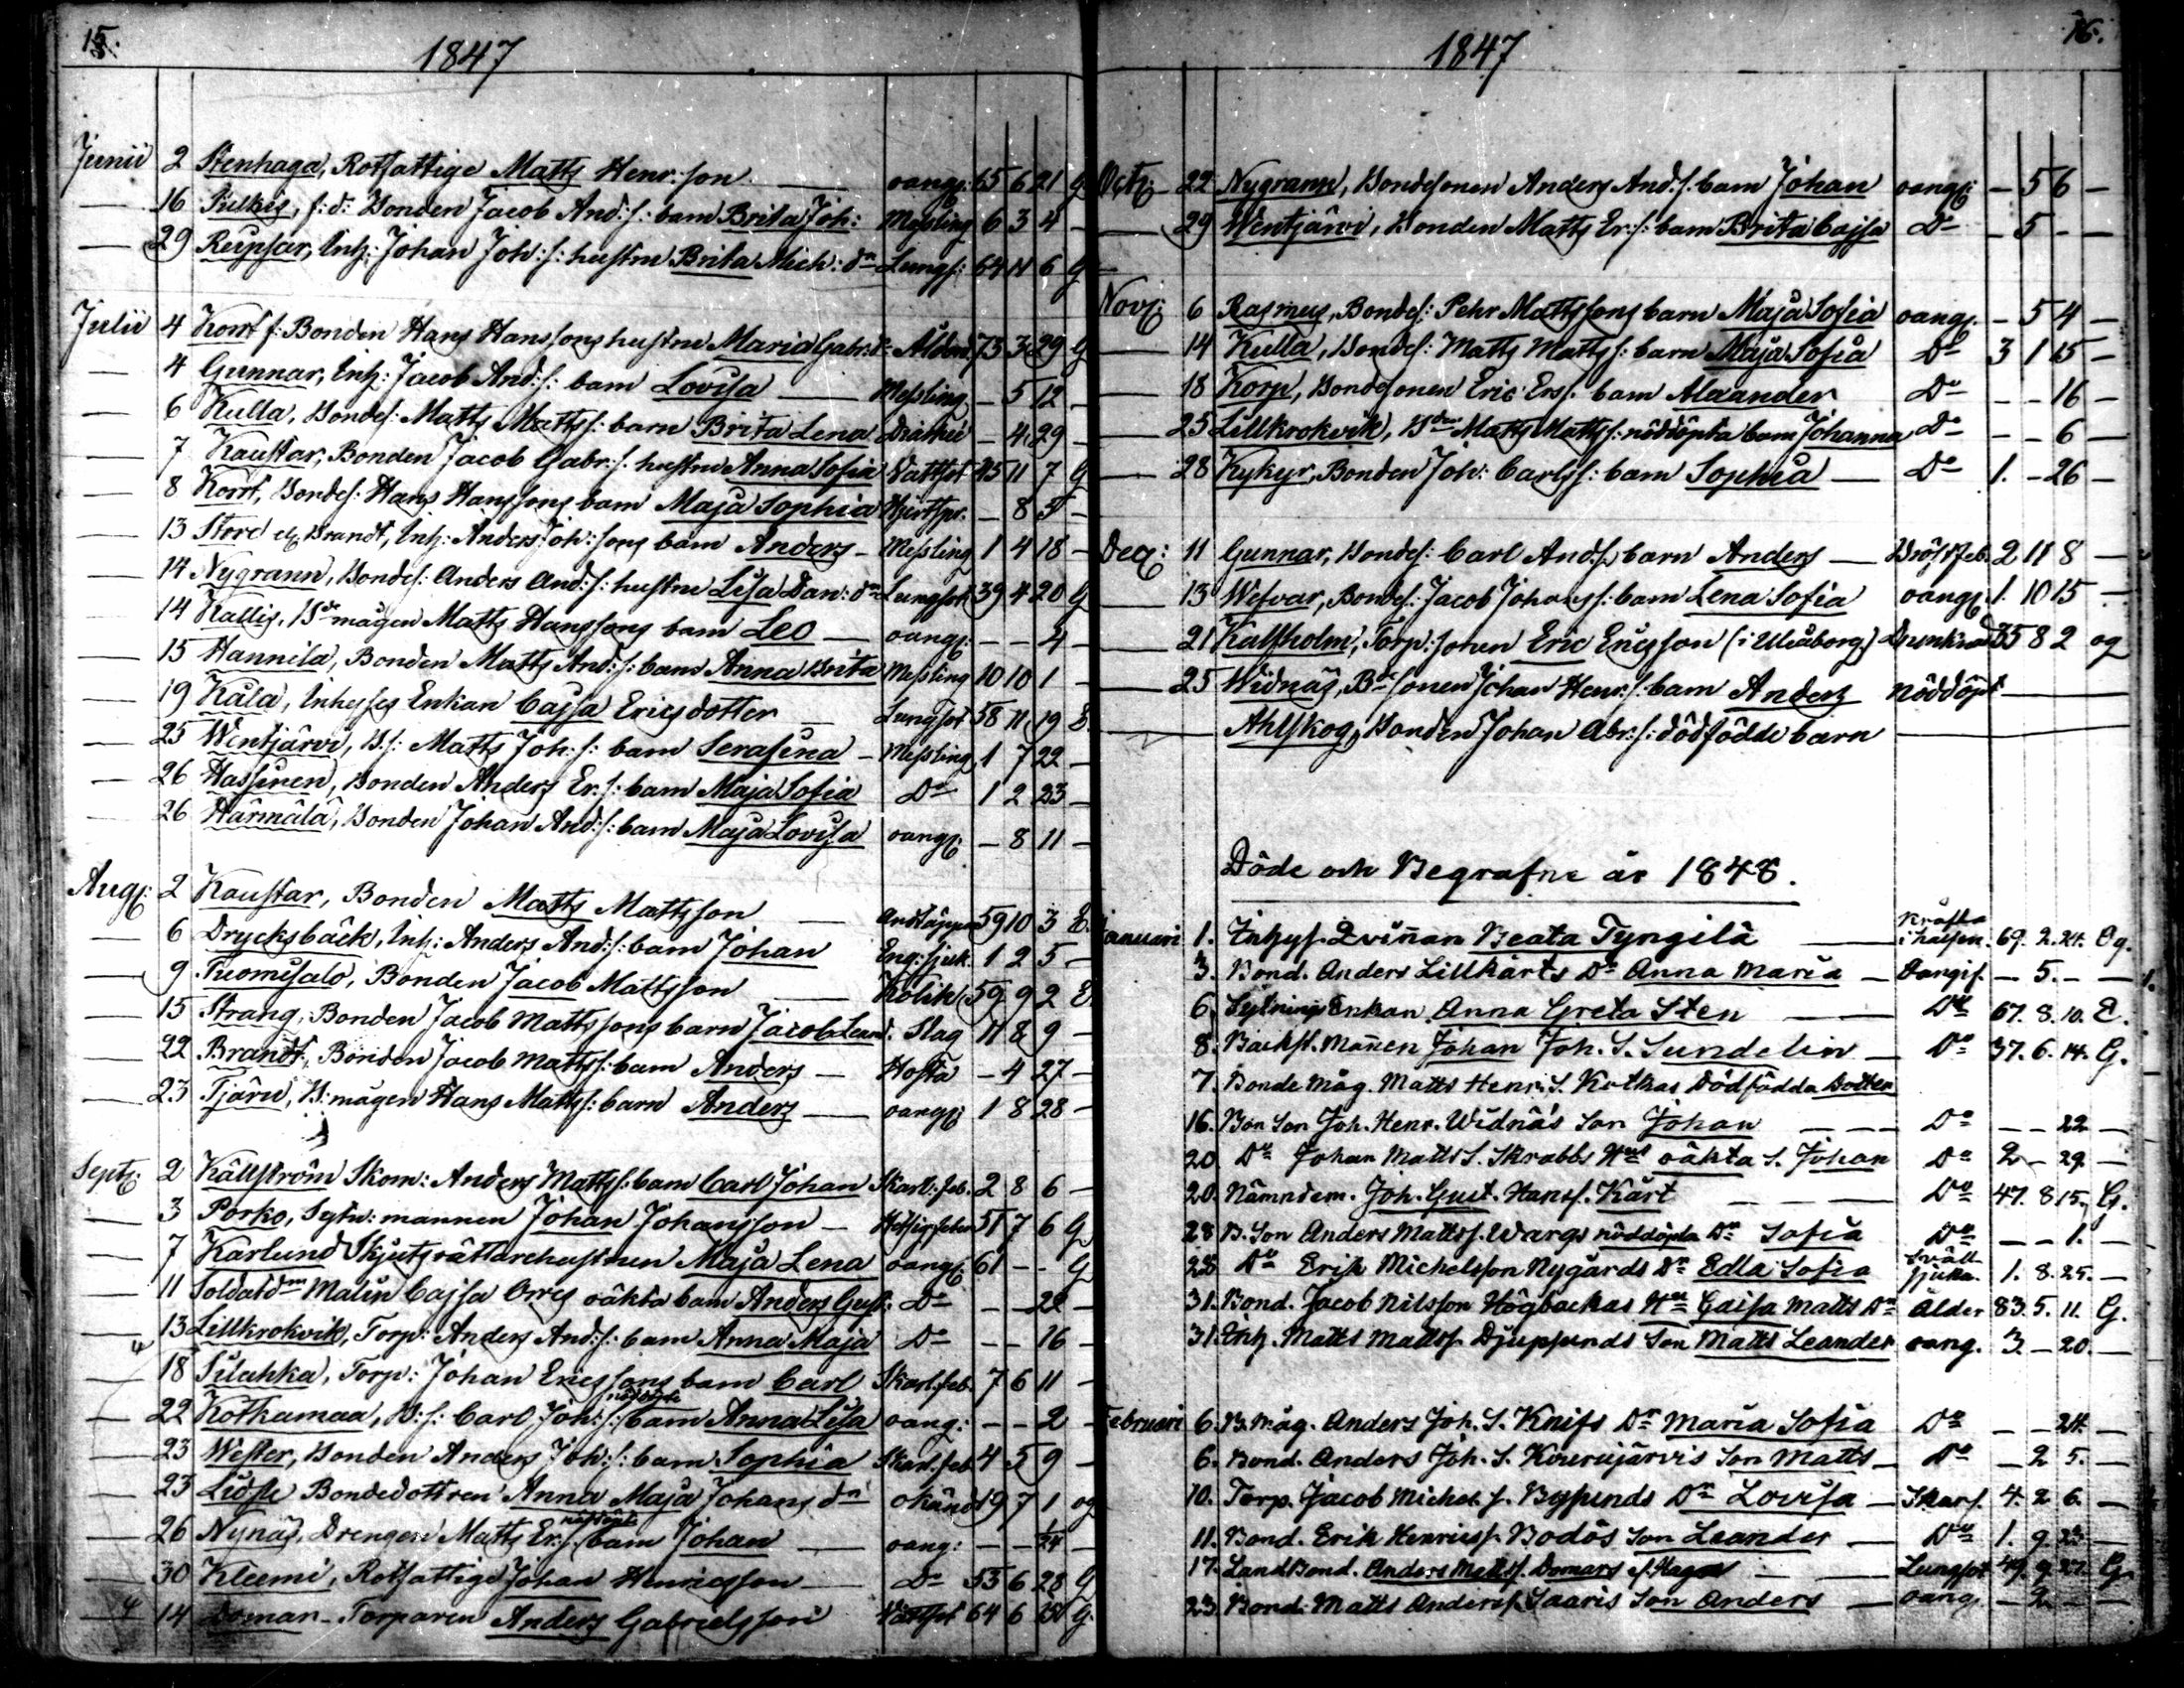 15.
1847
Junii 2 Stenhaga, Rotfattige Matts Henr:son oangf: 65 6 21 g
16 Pulkis, f:d: Bonden Jacob And:s: barn Brita Joh: Messling 6 3 4 -
29 Reipsar, Inh: Johan Joh:s: hustru Brita Mich:dr Lungs: 64 11 6 g
Julii 4 Korrf f: Bonden Hans Hanssons hustru Maria Gabr:dr Ålderd. 73 3 29 g
4 Gunnar, Inh: Jacob And:s: barn Lovisa Messling - 5 12 -
6 Kulla, Bondes: Matts Matts s: barn Brita Lena - 4 29 -
7 Kaustar, Bonden Jacob Gabr:s: hustru Anna Sofia Vattsot 45 11 7 g
8 Korrf, Bondes: Hans Hanssons barn Maja Sophia - 8 5 -
13 Store el. Brandt, Inh: Anders Joh:sons barn Anders Messling 1 4 18 -
14 Nygrann, Bondes: Anders And:s: hustru Lisa Dan:dr Lungsot 39 4 20 g
14 Kallis, Bde mågen Matts Hanssons barn Leo oangf: - - 4 -
15 Hannila, Bonden Matts And:s: barn Anna Brita Messling 10 10 1 -
19 Kåla, Inhyses Enkan Cajsa Ericsdotter Lungsot 58 11 19 E.
25 Wentjärvi, B.s: Matts Joh:s: barn Serafina Messling 1 7 22 -
26 Hassinen, Bonden Anders Er.s: barn Maja Sofia Do 1 2 23 -
26 Härmälä, Bonden Johan And:s: barn Maja Lovisa oangf: - 8 11 -
Aug: 2 Kaustar, Bonden Matts Mattsson Andtäppa 59 10 3 E.
6 Drycksbäck, Inh: Anders And:s: barn Johan Eng: sjuk. 1 2 5 -
9 Tuomisalo, Bonden Jacob Mattsson Kolik 59 9 2 E.
15 Strang, Bonden Jacob Mattssons barn Jacob Leand. Slag 11 8 9 -
22 Brandt, Bonden Jacob Matts s: barn Anders Hosta - 4 27 -
23 Tjäru, B: mågen Hans Matts s: barn Anders oangf: 1 8 28 -
Sept: 2 Källström Skom: Anders Matts s: barn Carl Johan Skarl: feb. 2 8 6 -
3 Porko, Sytn: mannen Johan Johansson 51 7 6 g
7 Karlund Skjutsrättarehustrun Maja Lena oangf: 61 - - g
11 Soldatdrn Malin Cajsa Orres oäkta barn Anders Gust: Do - - 22 -
13 Lillkrokvik, Torp: Anders And:s: barn Anna Maja Do - - 16 -
18 Silahka, Torp: Johan Ericssons barn Carl Skarl. feb. 7 6 11 -
22 Kotkamaa, B:s: Carl Joh:s: nöddöpte barn Anna Lisa oang: - - 2 -
23 Wester, Bonden Anders Joh:s: barn Sophia Skarl. feb. 4 5 9 -
23 Lidste Bondedottren Anna Maja Johansdr okänd 19 7 1 og
26 Nynäs, Drengen Matts Er.s. nöddöpt barn Johan oang: - - 1/24 -
30 Kleemi, Rotfattige Johan Henricsson Do 53 6 28 g
4 14 Doman Torparen Anders Gabrielsson Vattsot 64 6 g.
16.
1847
Oct: 22 Nygrann, Bondesonen Anders And:s: barn Johan oangf: - 5 6 -
29 Wentjärvi, Bonden Matts Er:s: barn Brita Cajsa Do - 5 - -
Nov: 6 Rasmus, Bondes: Pehr Mattssons barn Maja Sofia oangf. - 5 4 -
14 Kulla, Bondes: Matts Matts s: barn Maja Sofia Do 3 1 15 -
18 Korp, Bondesonen Eric Ers s. barn Alexander Do - - 16 -
25 Lillkrokvik, Bden Matts Matts s: nöddöpta barn Johanna Do - - 6 -
28 Kykyr, Bonden Joh: Carls s: barn Sophia Do 1. - 26 -
Dec: 11 Gunnar, Bondes: Carl And:s: barn Anders Bröstfeb. 2 11 8 -
13 Wesvar, Bondes: Jacob Johans s: barn Lena Sofia oangf. 1. 10 15 -
21 Kalfholm, Torp: sonen Eric Ericsson (i Uleåborg) Drunknad 35 8 2 og
25 Widnäs, Bdesonen Johan Henr.s. barn Anders Nöddöpt
Ahlskog, Bonden Johan Abr:s: dödfödde barn
Döde och Begrafne år 1848.
Januari 1. Inhys. Qvinnan Beata Tyngilä Kräfta i halsen. 69. 2. 24. Og.
3. Bond. Anders Lillkårts Dr Anna Maria Oangif. - 5. - -
6. Sytnings Enkan Anna Greta Sten Do 67. 8. 10. E.
8. Backst. Mannen Johan Joh. S. Sundelin Do 37. 6. 14. G.
7. Bonde Måg. Matts Henr. S. Kotkas Dödfödda Dotter
16. Bon Son Joh. Henr. Widnäs Son Johan Do - - 22 -
20. Do Johan Matts S. Skrabbs Hus oäkta S. Johan Do 2 - 29. -
20. Nämndem. Joh. Gust. Hanss. Kårt Do 47. 8. 15. G.
28 B. Son Anders Matts s. Wargs nöddöpta Dr Sofia Do - - 1. -
28 Do Erik Michelsson Nygårds Dr Edla Sofia sjuka. 1. 8. 25. -
31. Bond. Jacob Nilsson Högbackas Hu Caisa Matts Dr Ålder 83. 5. 11. G.
31. Inh. Matts Matts s. Djupsunds Son Matts Leander oang. 3. - 20. -
Februari 6. B. Måg. Anders Joh. S. Knifs Dr Maria Sofia Do - - 24. -
6. Bond. Anders Joh. S. Kourujärvis Son Matts Do - 2 5. -
10. Torp. Jacob Michel s. Bysunds Dr Lovisa Skarf. 4. 2 6. -
11. Bond. Erik Henrics s. Bodös Son Leander Do 1. 9 -
17. Land Bond. Anders Matts s. Domars Lungsot 49. 9. 27. G.
23. Bond. Matts Anders s. Saaris Son Anders oang. - 2 - -